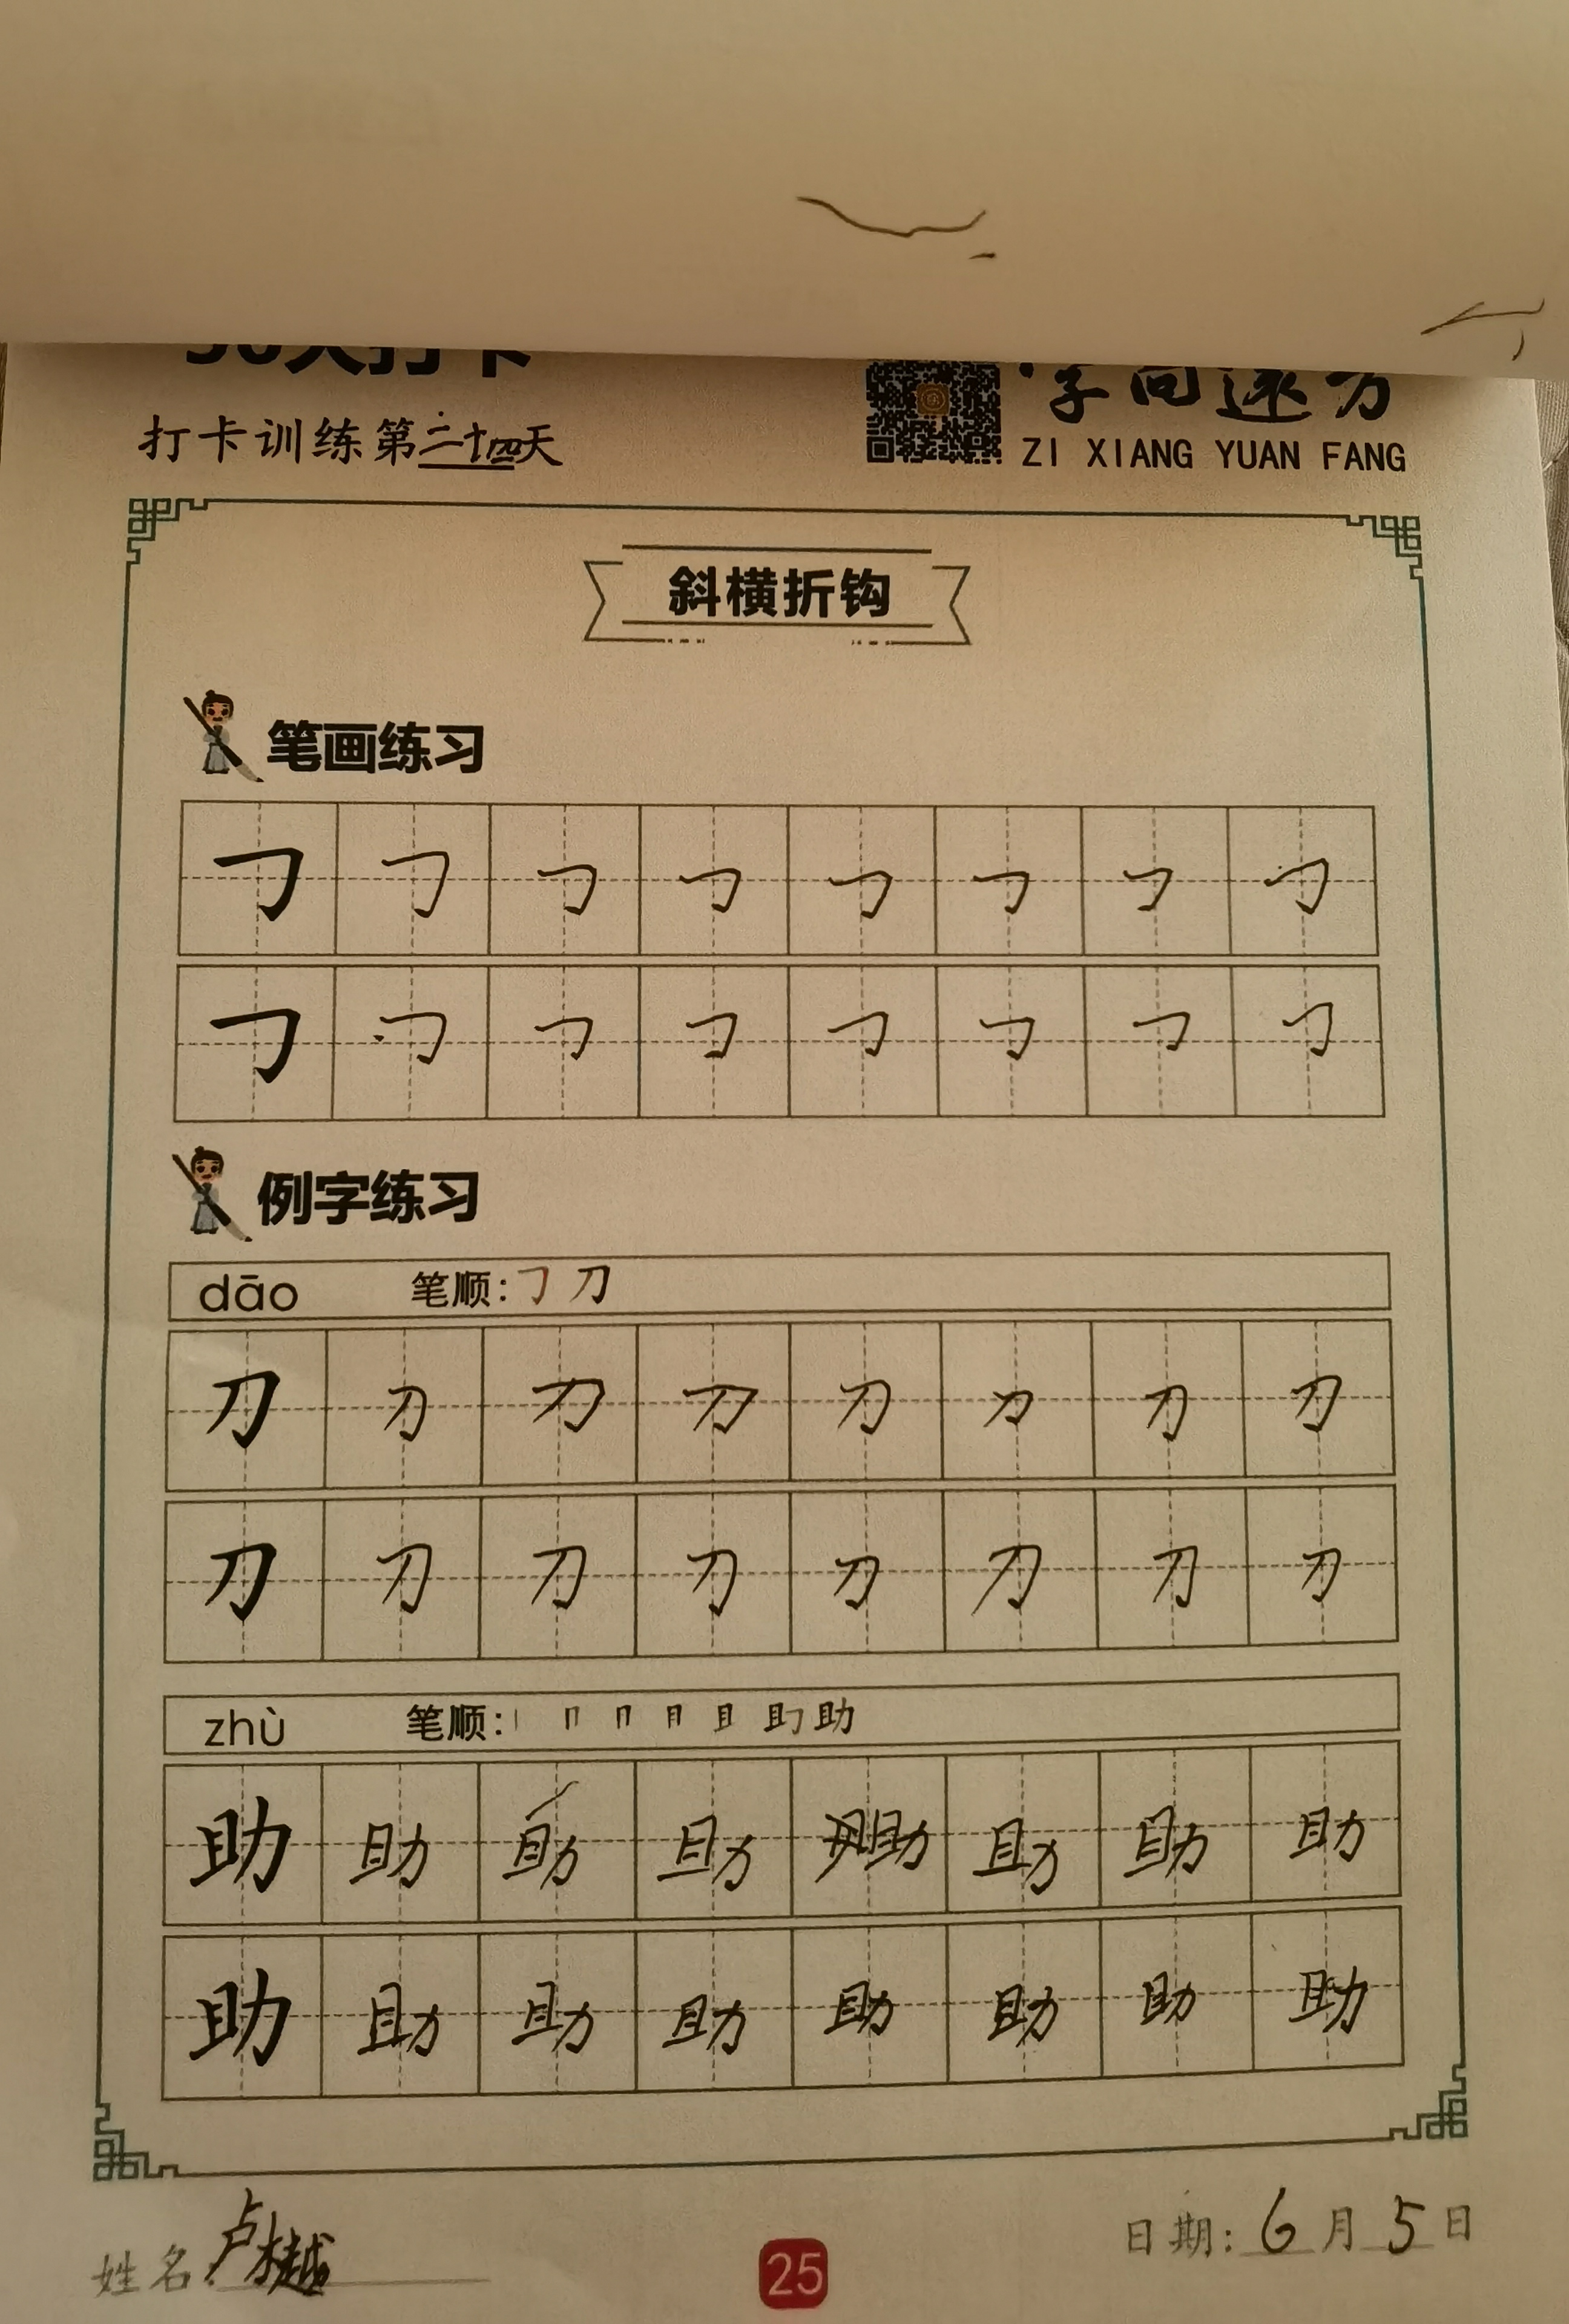 30天打卡
字向远方
打卡训练第二十四天
ZI XIANG YUAN FANG
斜横折钩
笔画练习
例字练习
dāo 笔顺: 刀
刀 刀 刀 刀 刀 刀 刀 刀
刀 刀 刀 刀 刀 刀 刀 刀
zhù 笔顺: 丨 冂 冂 月 且 助
助 助 助 助 助 助 助 助
助 助 助 助 助 助 助 助
姓名 卢
25
日期: 6 月 5 日